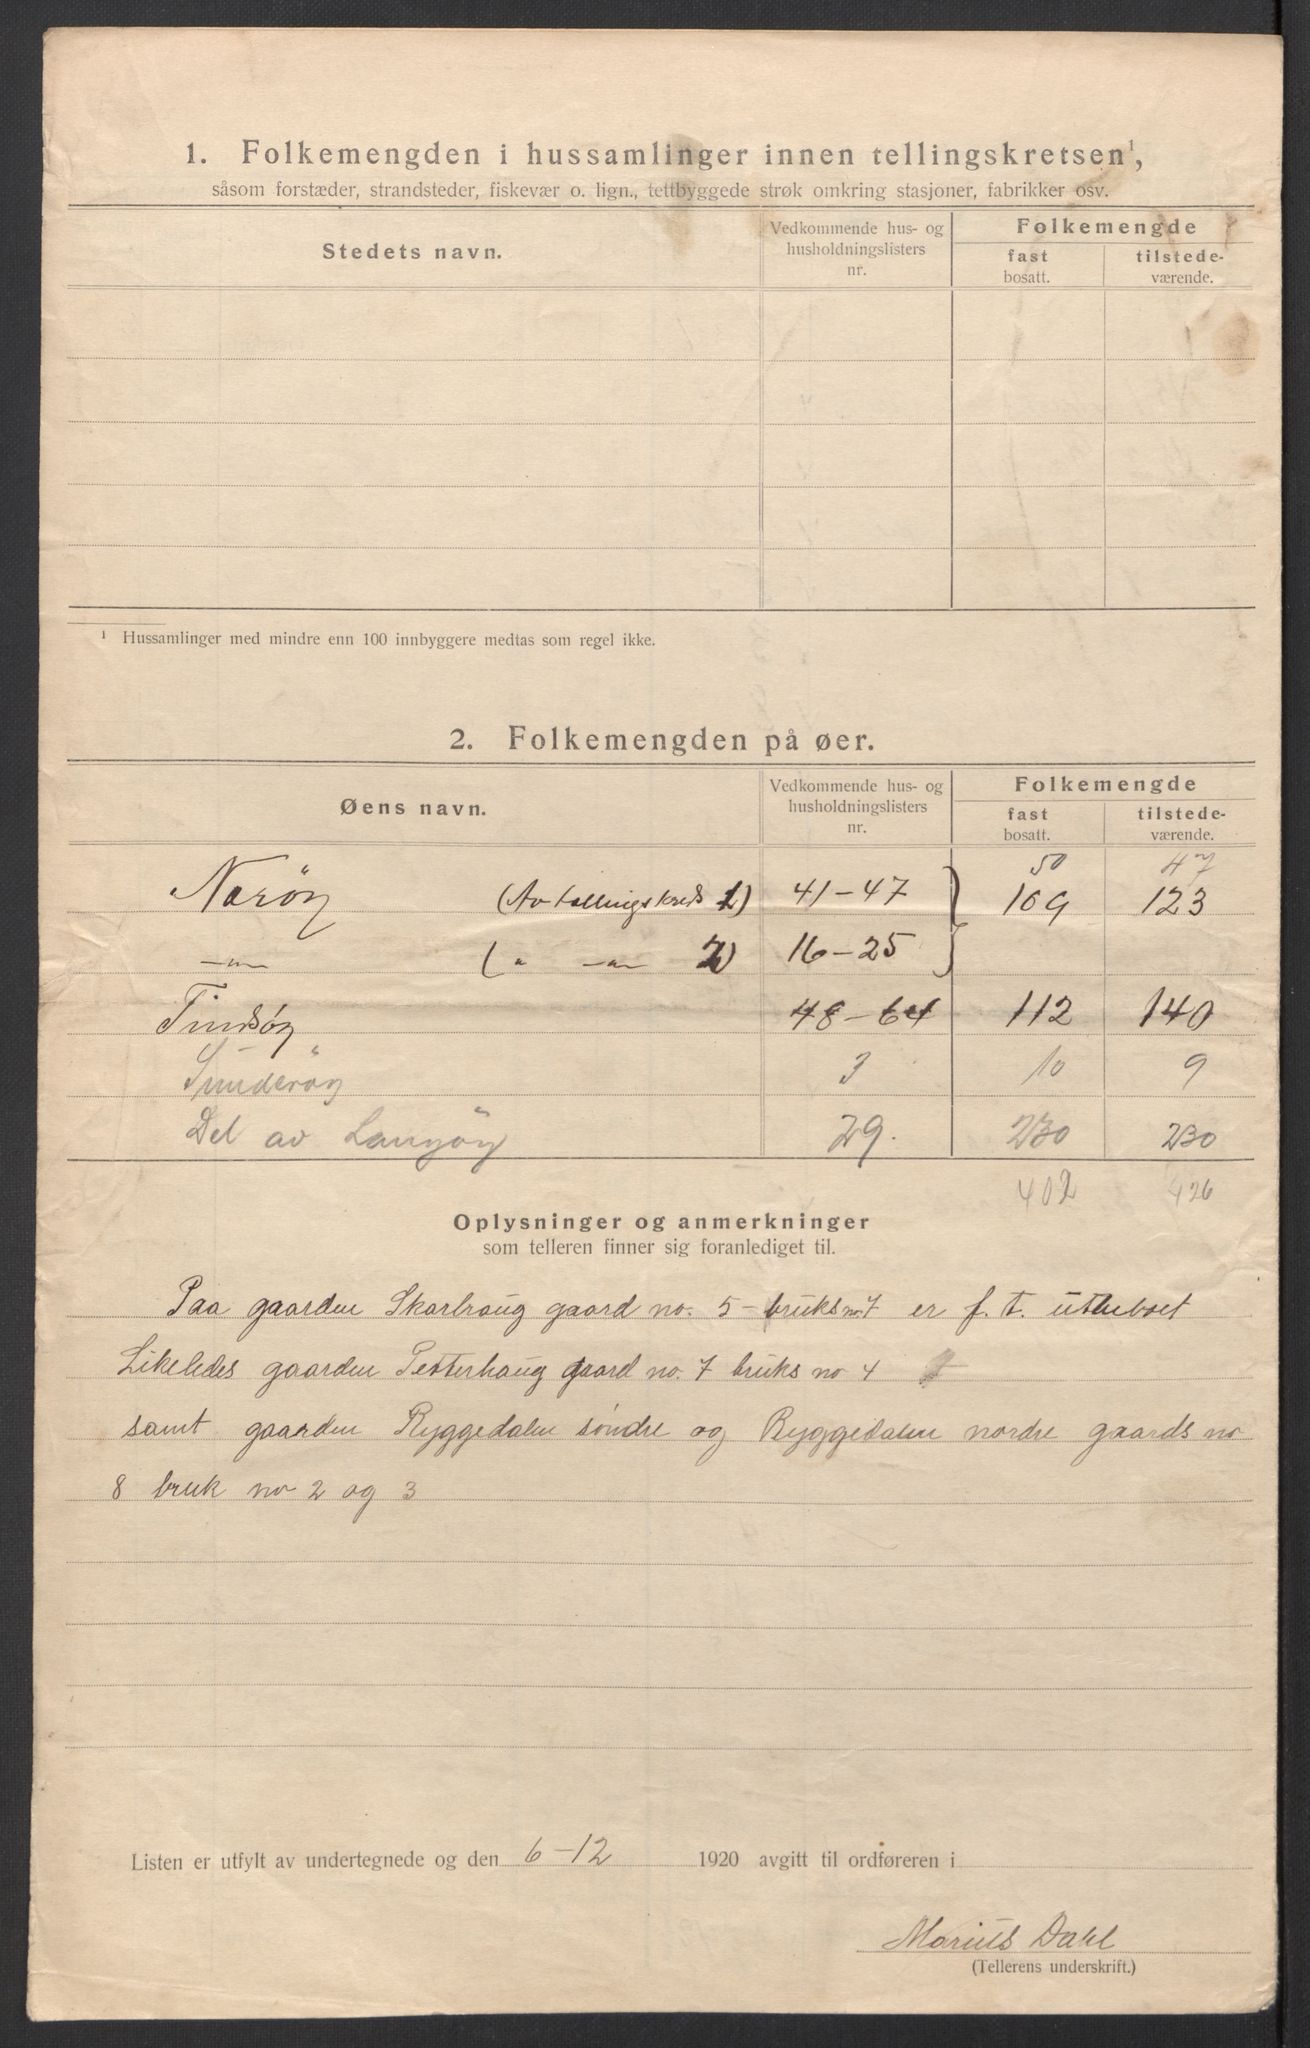 1. Folkemengden i hussamlinger innen tellingskretsen¹,
såsom forstæder, strandsteder, fiskevær o. lign., tettbyggede strøk omkring stasjoner, fabrikker osv.
Stedets navn.
Vedkommende hus- og husholdningslisters nr.
Folkemengde
fast bosatt.
tilstede-værende.
¹ Hussamlinger med mindre enn 100 innbyggere medtas som regel ikke.
2. Folkemengden på øer.
Øens navn.
Vedkommende hus- og husholdningslisters nr.
Folkemengde
fast bosatt.
tilstede-værende.
50 47
Nærøy (Av tellingskreds 1) 41-47 109 123
-"- (" -"- 2) 16-25
Tindsøy 48-64 112 140
3 10 9
Del av Langöy 29. 230 230
402 426
Oplysninger og anmerkninger
som telleren finner sig foranlediget til.
Paa gaarden gaard no. 5 - bruksno. 7 er f. t. utbeboet
Likeledes gaarden Petterhaug gaard no. 7 bruks no 4
samt gaarden Ryggedalen søndre og Ryggedalen nordre gaards no
8 bruk no 2 og 3
Listen er utfylt av undertegnede og den 6-12 1920 avgitt til ordføreren i
Marius Dahl
(Tellerens underskrift.)